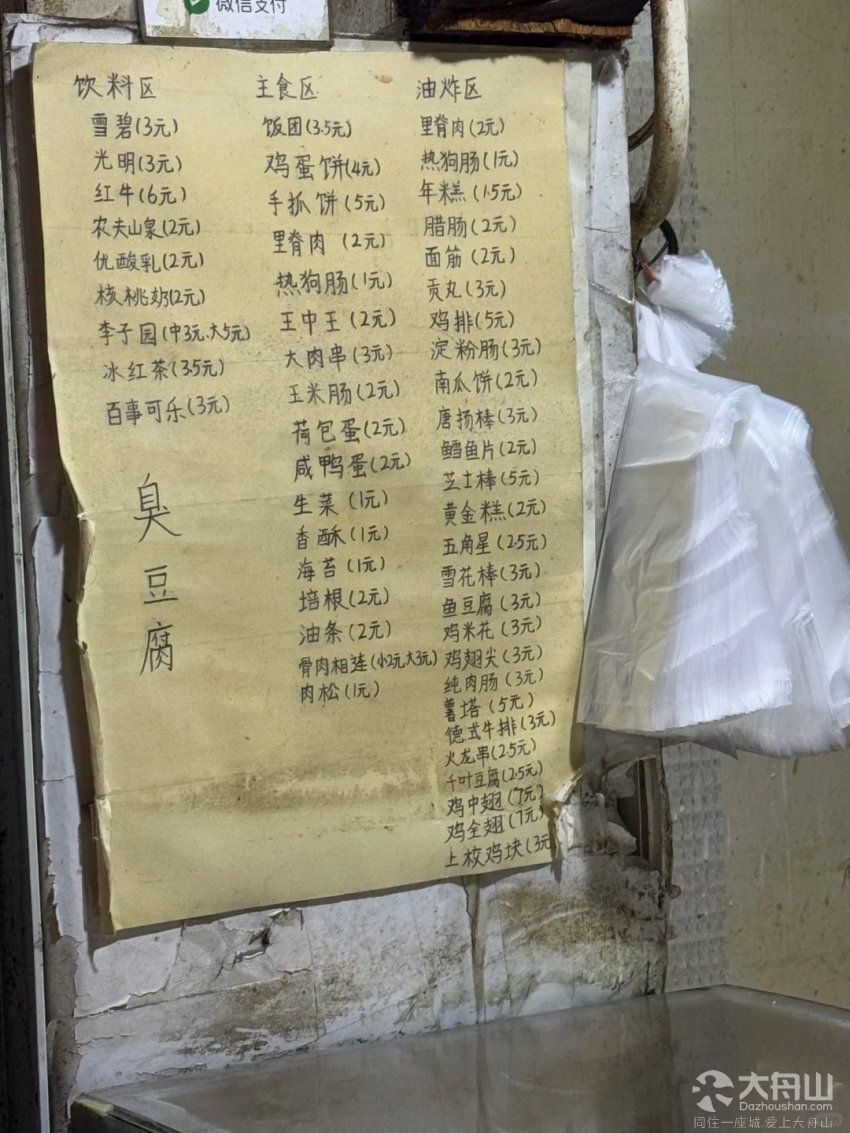 微信支付
饮料区
雪碧(3元)
光明(3元)
红牛(6元)
农夫山泉(2元)
优酸乳(2元)
核桃奶(2元)
李子园(中3元、大5元)
冰红茶(3.5元)
百事可乐(3元)
臭豆腐
主食区
饭团(3.5元)
鸡蛋饼(4元)
手抓饼(5元)
里脊肉(2元)
热狗肠(1元)
王中王(2元)
大肉串(3元)
玉米肠(2元)
荷包蛋(2元)
咸鸭蛋(2元)
生菜(1元)
香酥(1元)
海苔(1元)
培根(2元)
油条(2元)
骨肉相连(小2元大3元)
肉松(1元)
油炸区
里脊肉(2元)
热狗肠(1元)
年糕(1.5元)
腊肠(2元)
面筋(2元)
贡丸(3元)
鸡排(5元)
淀粉肠(3元)
南瓜饼(2元)
唐扬棒(3元)
鳕鱼片(2元)
芝士棒(5元)
黄金糕(2元)
五角星(2.5元)
雪花棒(3元)
鱼豆腐(3元)
鸡米花(3元)
鸡翅尖(3元)
纯肉肠(3元)
薯塔(5元)
德式牛排(3元)
火龙串(2.5元)
千叶豆腐(2.5元)
鸡中翅(7元)
鸡全翅(7元)
上校鸡块(3元
大舟山
Dazhoushan.com
同住一座城.爱上大舟山